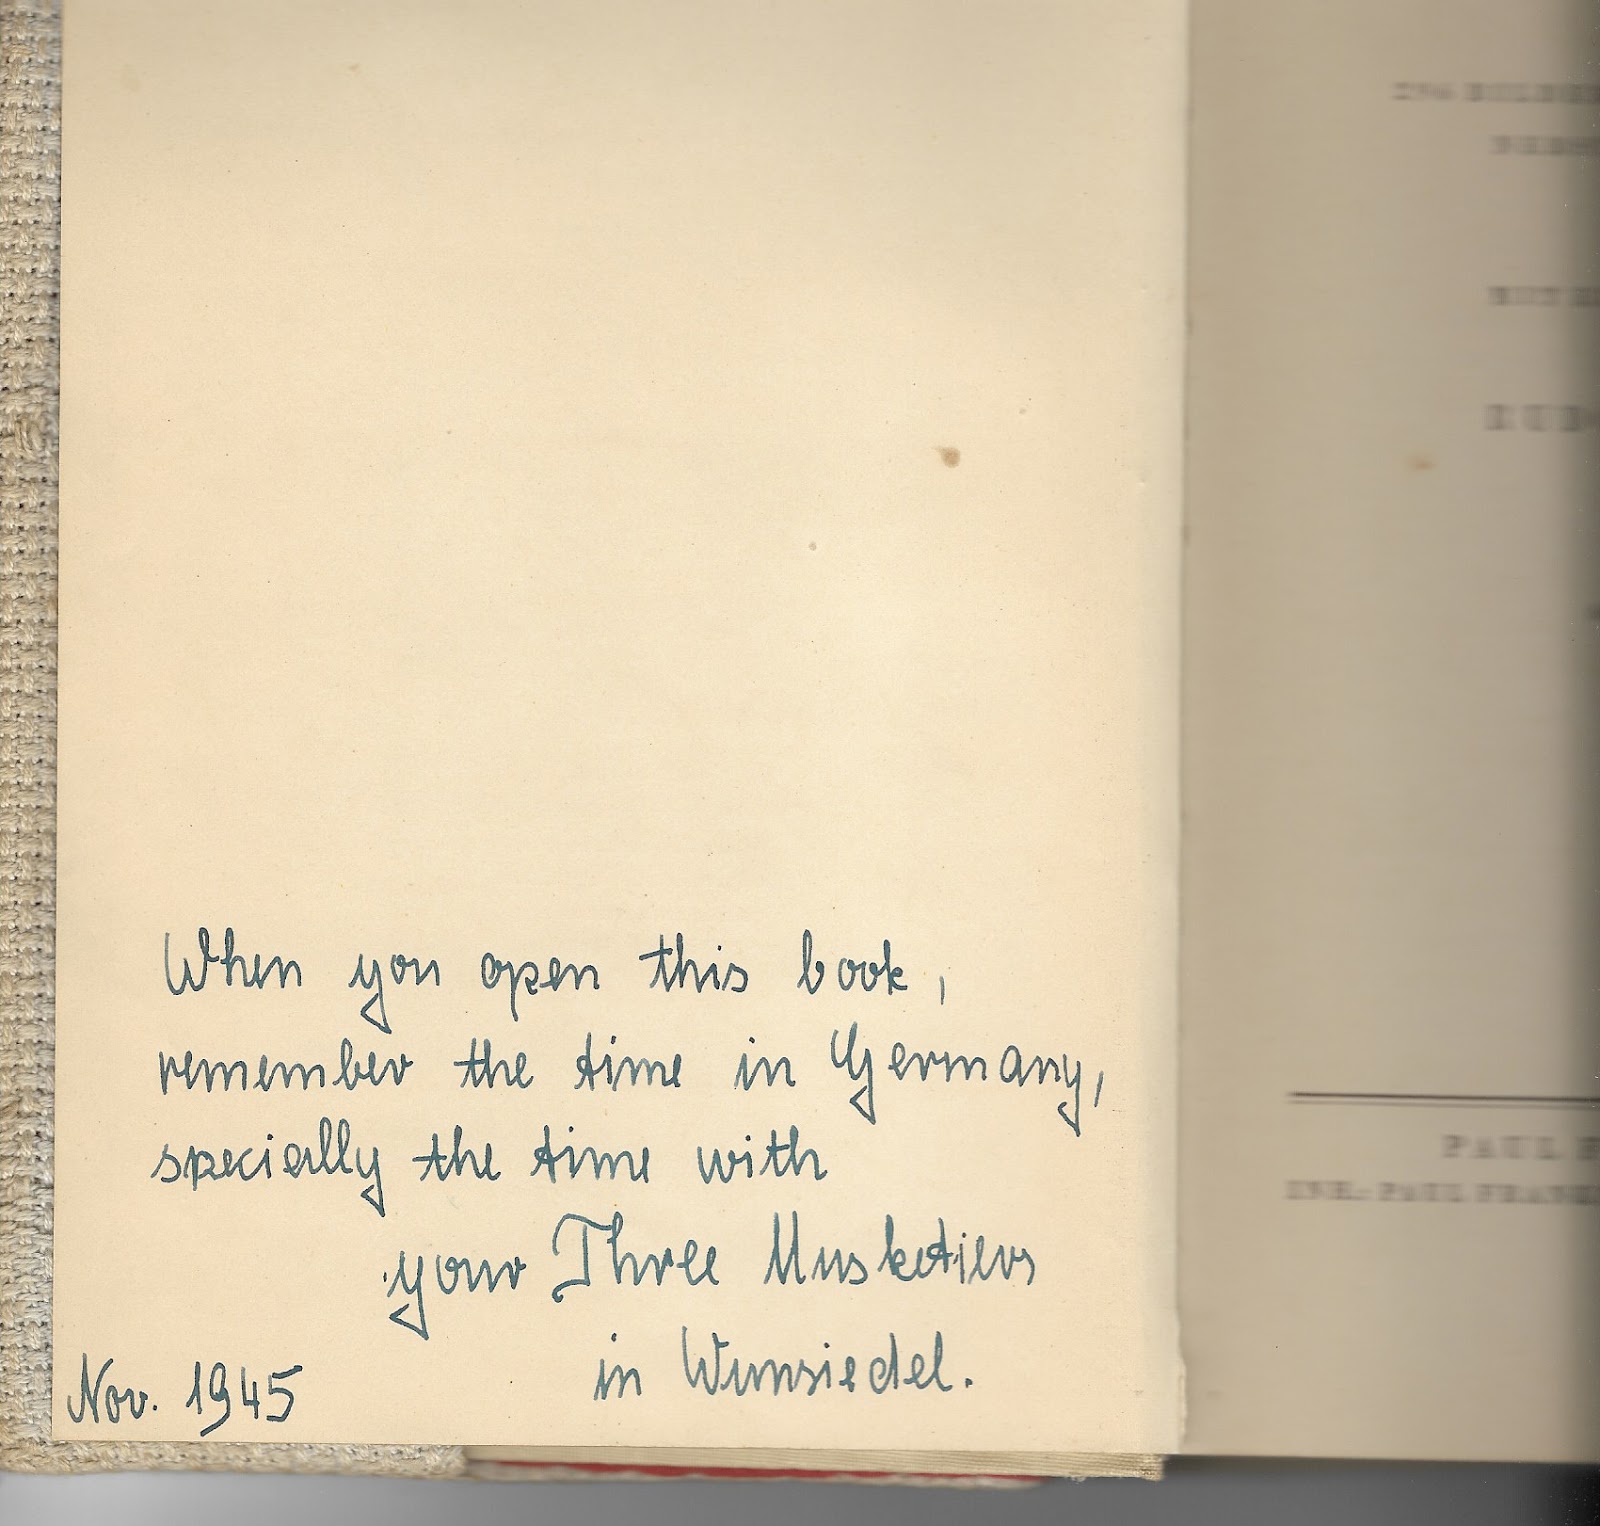 When you open this book,
remember the time in Germany,
specially the time with
your Three Musketiers
in Wunsiedel.
Nov. 1945
PAUL
INH.: PAUL